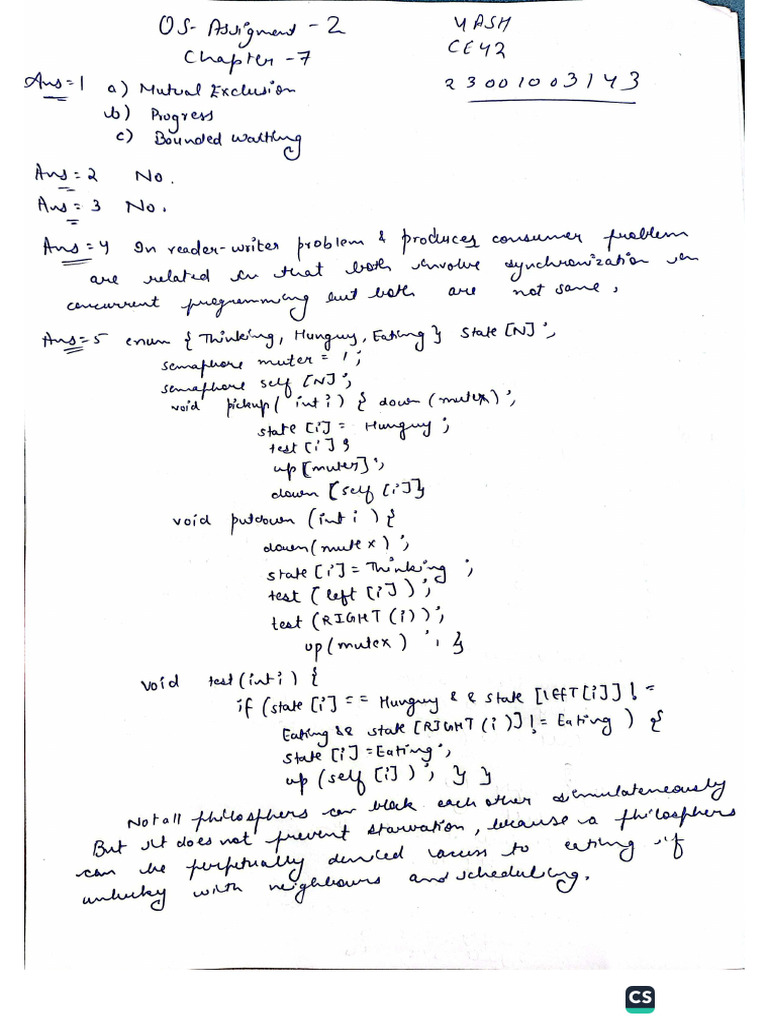 OS- Assigment - 2
YASH
Chapter - 7
CE42
23001003143
Ans=1 a) Mutual Exclusion
b) Progress
c) Bounded Waiting
Ans=2 No.
Ans=3 No.
Ans=4 In reader-writer problem & produces consumer problem
are related in that both involve synchronization in
concurrent programming but both are not same,
Ans=5 enum { Thinking, Hunguy, Eating } State [N];
semaphore muter = 1;
semaphore self [N];
void pickup( int i ) { down (mutex);
state [i] = Hunguy;
test [i];
up [muter];
down [self [i]}
void putdown (int i ) {
down(mutex);
state [i] = Thinking ;
test ( left [i] );
test (RIGHT (i));
up(mutex) ; }
void test(int i) {
if (state [i] == Hunguy && state [lEfT[i]] ! =
Eating && state [RIGHT (i)] ! = Eating ) {
state [i] = Eating;
up (self [i] ); } }
Not all philosphers can block each other simulateneously
But it does not prevent starvation, because a philosphers
can be perpetually denied access to eating if
unlucky with neighbours and scheduling.
CS